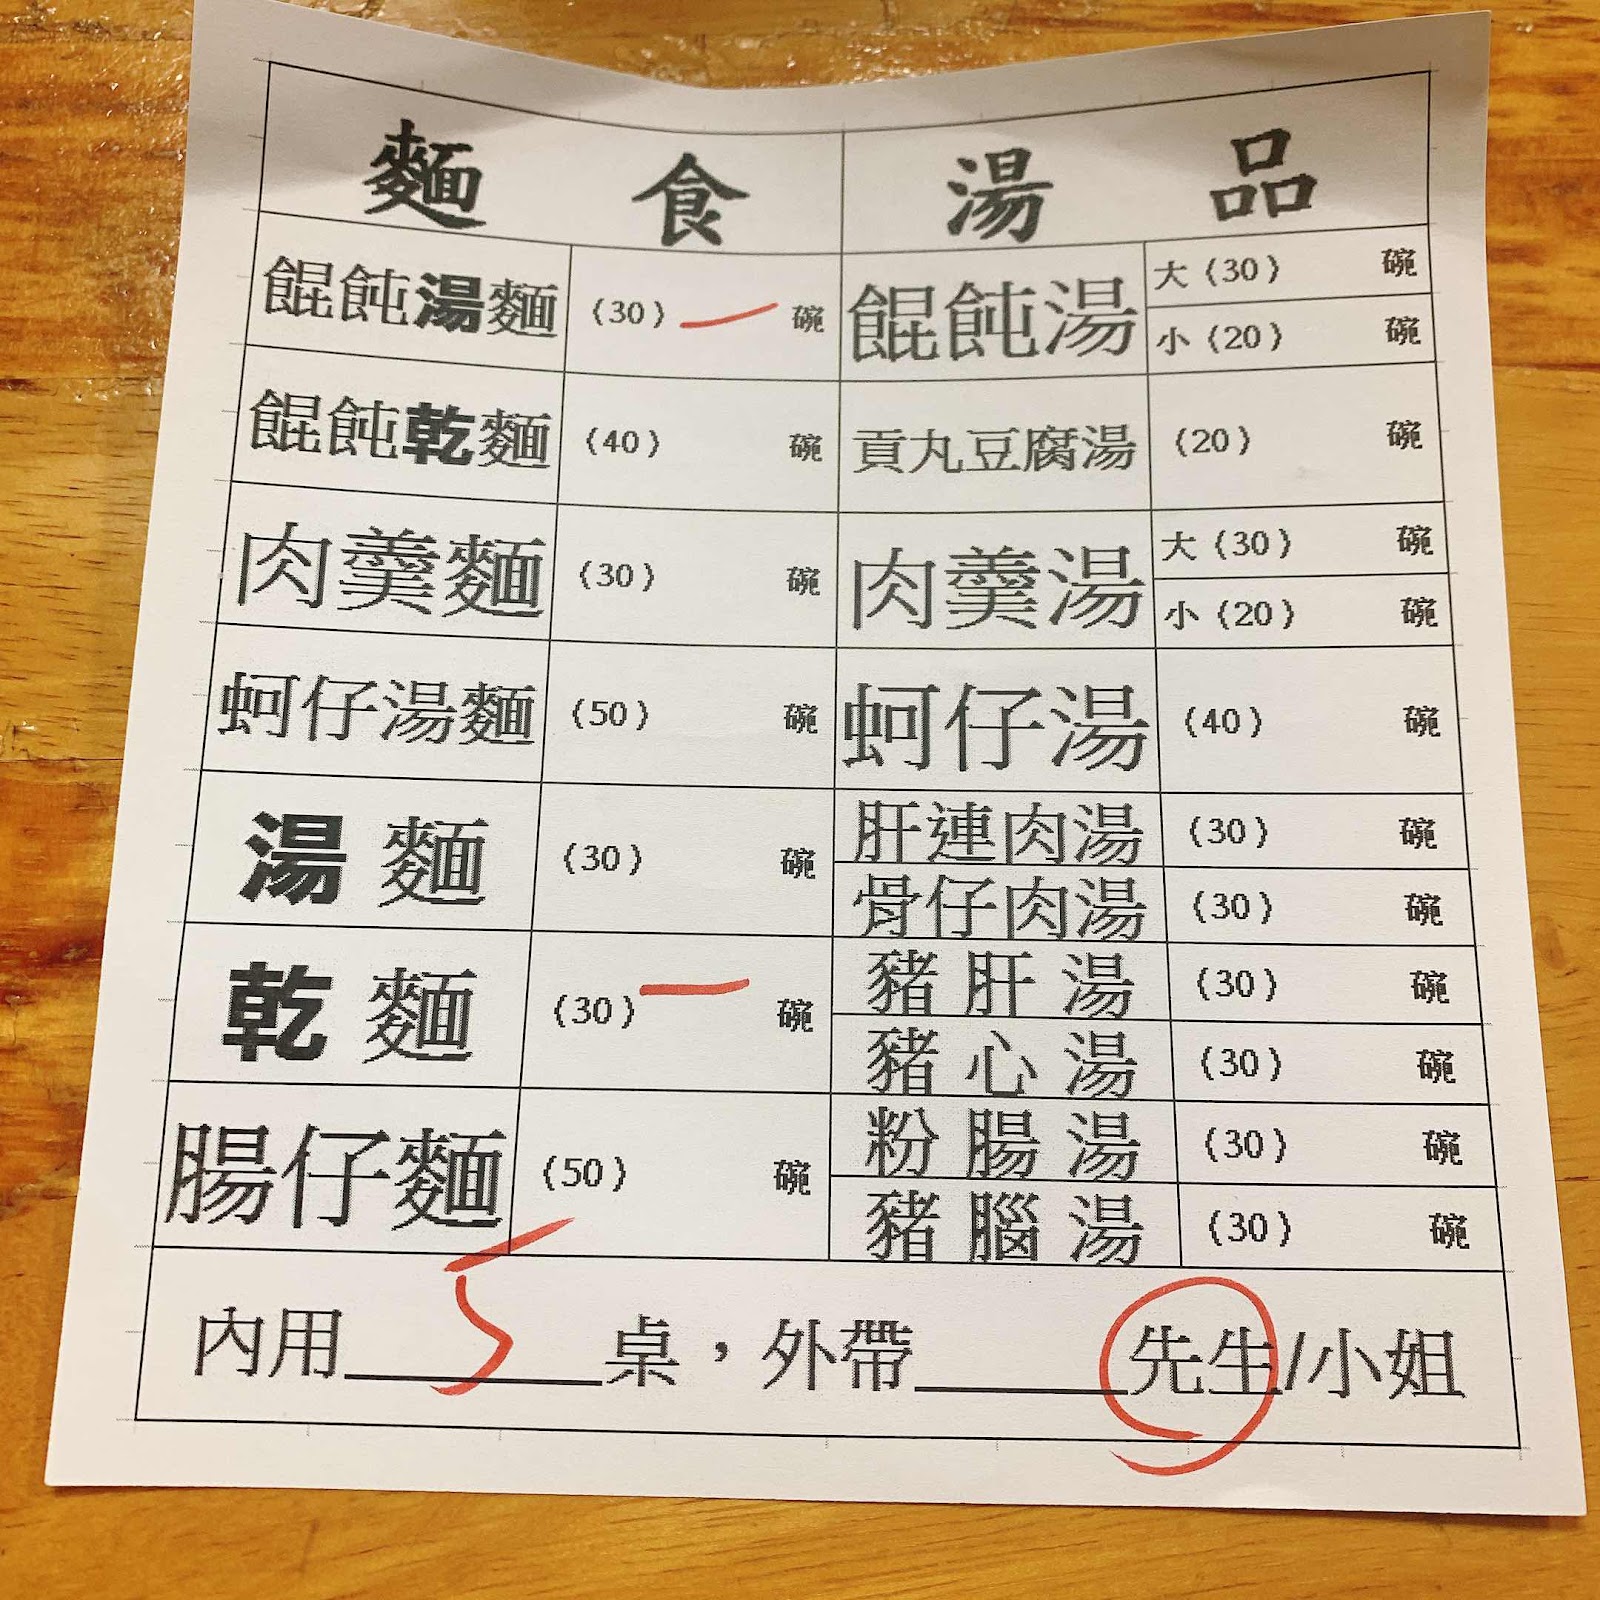 麵食
餛飩湯麵 (30) 一 碗
餛飩乾麵 (40) 碗
肉羹麵 (30) 碗
蚵仔湯麵 (50) 碗
湯麵 (30) 碗
乾麵 (30) 一 碗
腸仔麵 (50) 碗
湯品
餛飩湯 大 (30) 碗
小 (20) 碗
貢丸豆腐湯 (20) 碗
肉羹湯 大 (30) 碗
小 (20) 碗
蚵仔湯 (40) 碗
肝連肉湯 (30) 碗
骨仔肉湯 (30) 碗
豬肝湯 (30) 碗
豬心湯 (30) 碗
粉腸湯 (30) 碗
豬腦湯 (30) 碗
內用 5 桌，外帶______先生/小姐